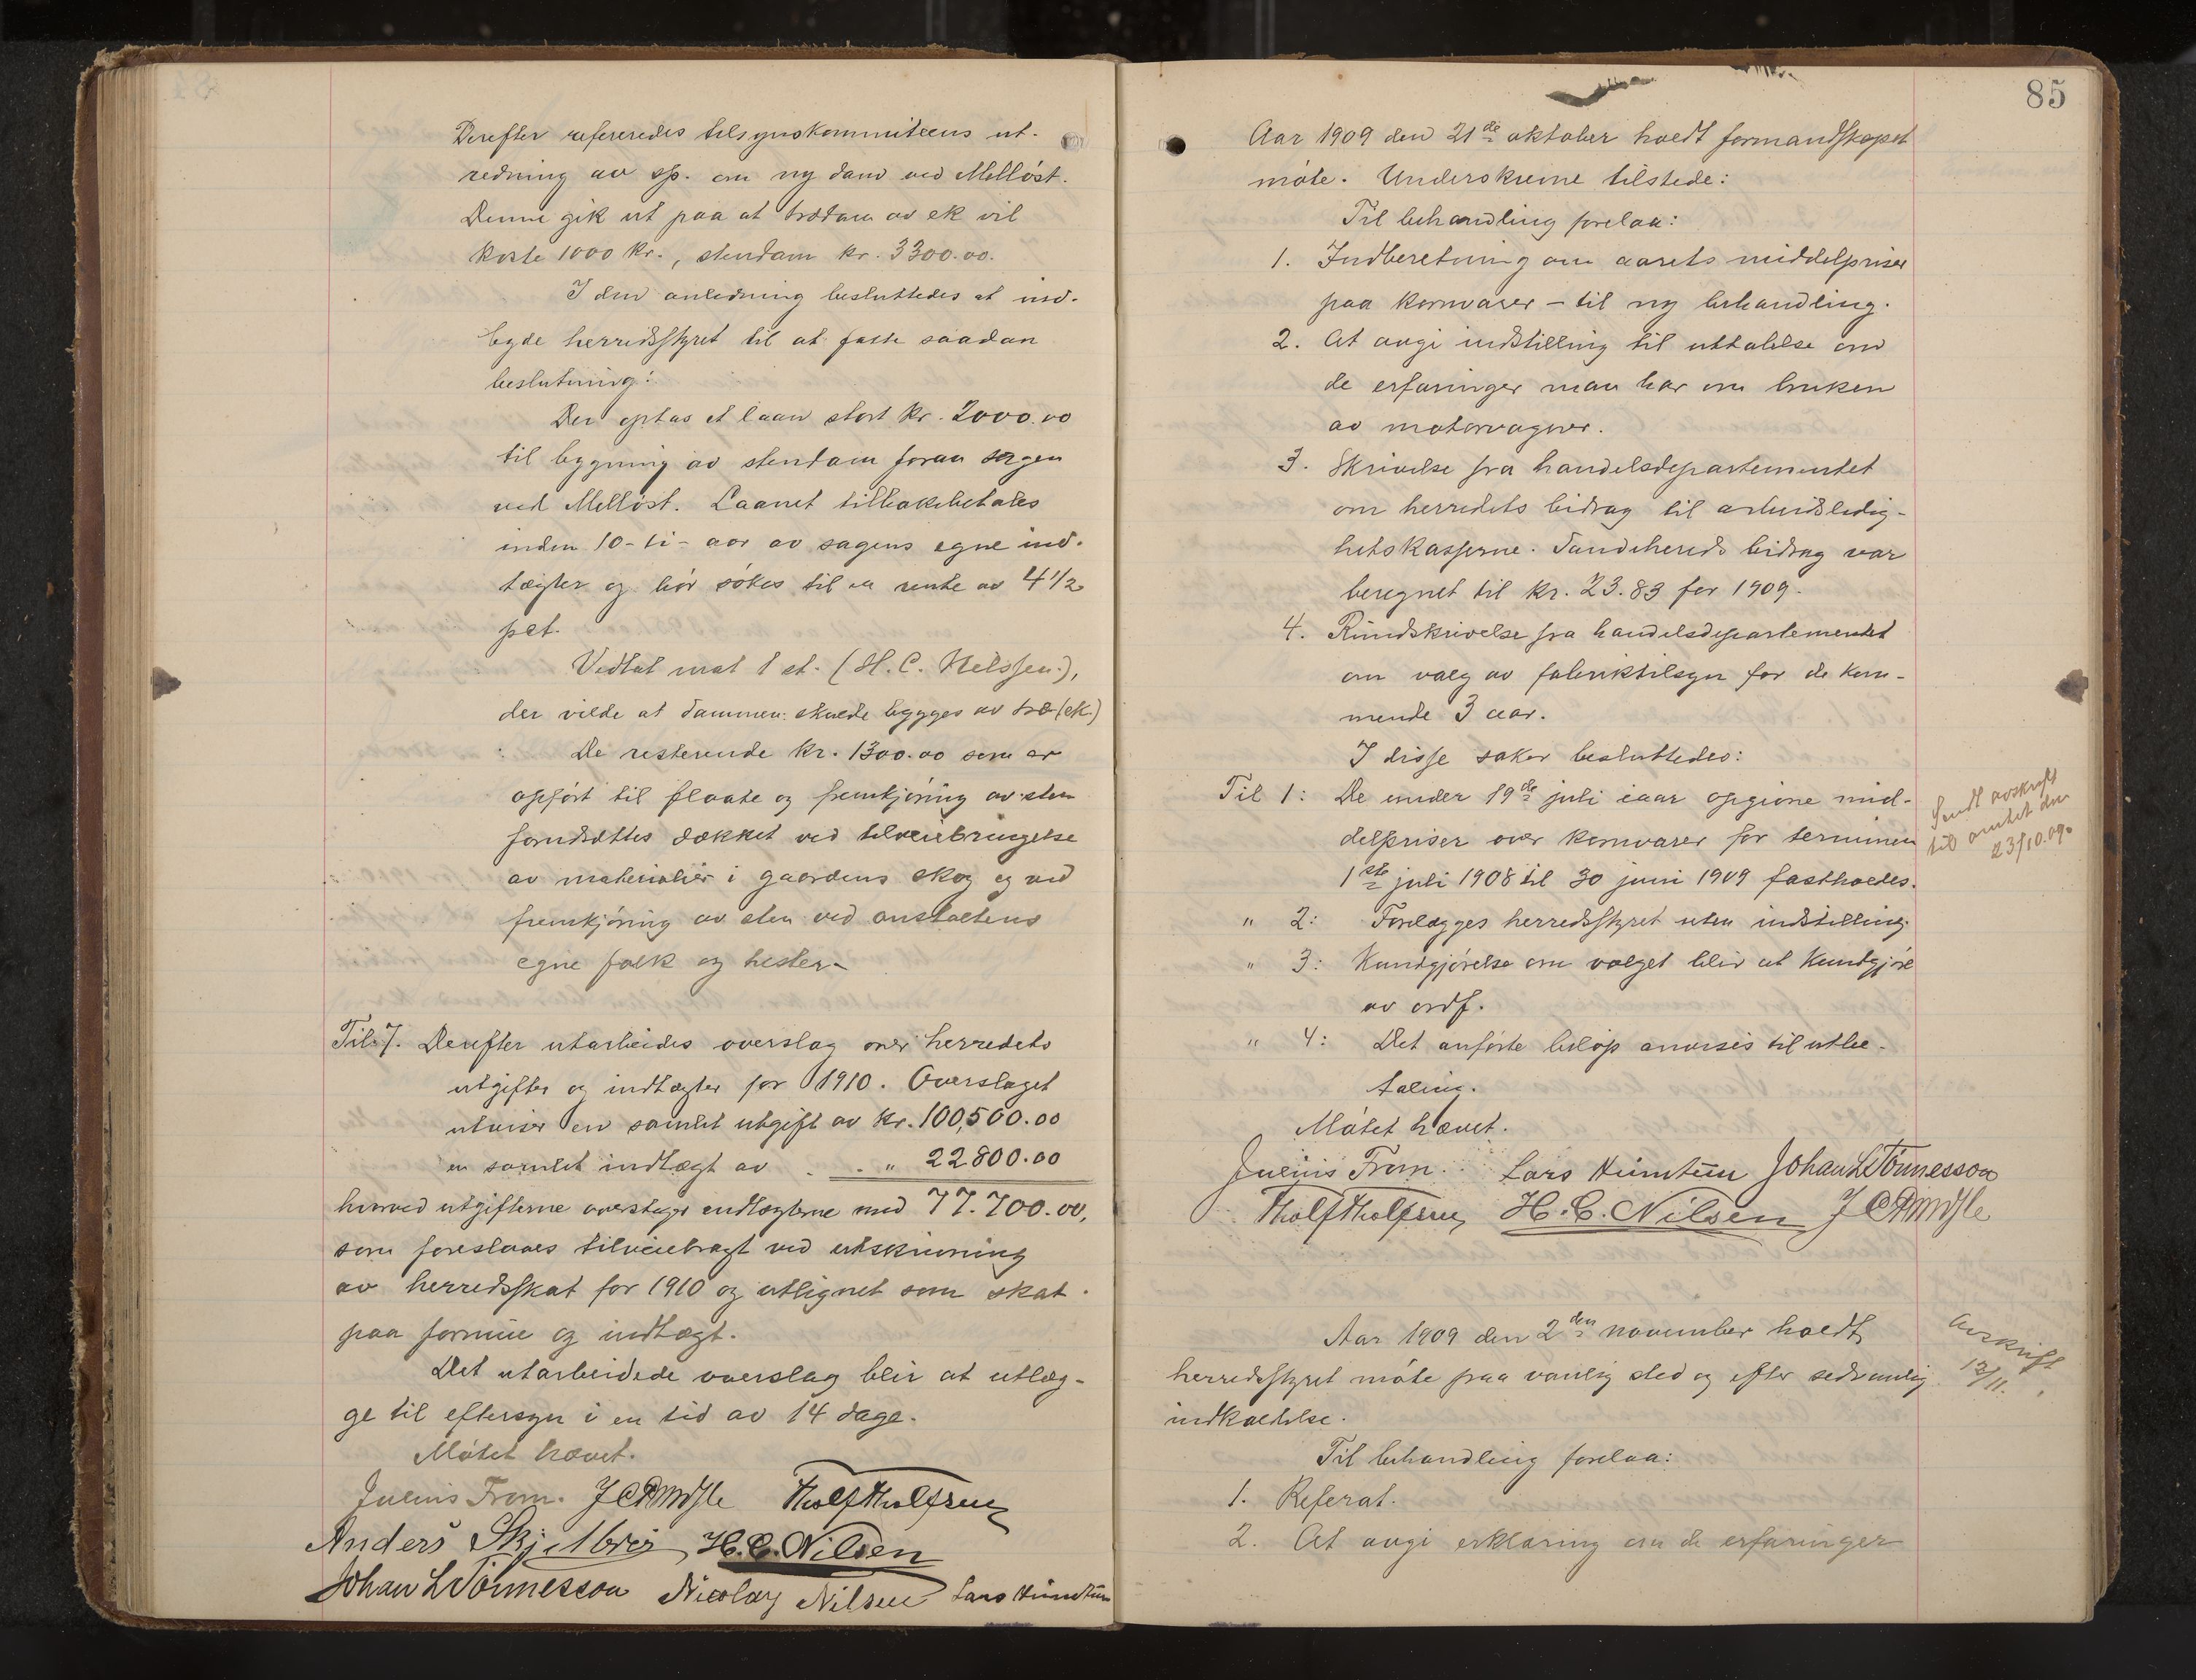 Derefter refereredes tilsynskommiteens ut-
redning av sp. om ny dam ved Melløst.
Denne gik ut paa at trædam av ek vil
koste 1000 kr., stendam kr. 3300.00.
I den anledning besluttedes at ind-
byde herredsstyret til at fatte saadan
beslutning:
Der optas et laan stort kr. 2000.00
til bygning av stendam foran sagen
ved Melløst. Laanet tilbakebetales
inden 10-ti- aar av sagens egne ind-
tægter og bør søkes til en rente av 4 1/2
pct.
Vedtat mot 1 st. (H. C. Nelssen),
der vilde at dammen skulde bygges av træ (ek.)
De resterende kr. 1300.00 som er
opført til flaate og fremkjøring av sten
forudsættes dækket ved tilveiebringelse
av materialier i gaardens skog og ved
fremkjøring av sten ved anstaltens
egne folk og hester.
Til 7. Derefter utarbeides overslag over herredets
utgifter og indtægter for 1910. Overslaget
utviser en samlet utgift av kr. 100,500.00
en samlet indtægt av . . " 22800.00
hvorved utgifterne overstiger indtægterne med 77.700.00,
som foreslaaes tilveiebragt ved utskrivning
av herredsskat for 1910 og utlignet som skat
paa formue og indtægt.
Det utarbeidede overslag blir at utlæg-
ge til eftersyn i en tid av 14 dage.
Møtet hævet.
Julius From. Tholf Tholfsen
Anders Skjelbrei H. C. Nilsen
Johan L Tönnesson Nicolay Nilsen Lars
85
Aar 1909 den 21de oktober holdt formandskapet
møte. Underskrevne tilstede:
Til behandling forelaa:
1. Indberetning om aarets middelpriser
paa kornvarer – til ny behandling.
2. At avgi indstilling til uttalelse om
de erfaringer man har om bruken
av motorvogner.
3. Skrivelse fra handelsdepartementet
om herredets bidrag til arbeidsledig-
hetskasserne. Sandeherreds bidrag var
beregnet til kr. 23.83 for 1909.
4. Rundskrivelse fra handelsdepartementet
om valg av fabriktilsyn for de kom-
mende 3 aar.
I disse saker besluttedes:
Til 1: De under 19de juli iaar opgivne mid-
delpriser over kornvarer for terminen
1ste juli 1908 til 30 juni 1909 fastholdes.
Sendt avskrift
til amtet den
23/10.09.
" 2: Forelægges herredsstyret uten indstilling.
" 3: Kundgjørelse om valget blir at kundgjøre
av ordf.
" 4: Det anførte beløp anvises til utbe-
taling.
Møtet hævet.
Julius From. Lars Johan L Tönnesson
Tholf Tholfsen H. C. Nilsen
Aar 1909 den 2den november holdt
herredsstyret møte paa vanlig sted og efter sedvanlig
indkaldelse.
Avskrift
12/11.
Til behandling forelaa:
1. Referat.
2. At avgi erklæring om de erfaringer